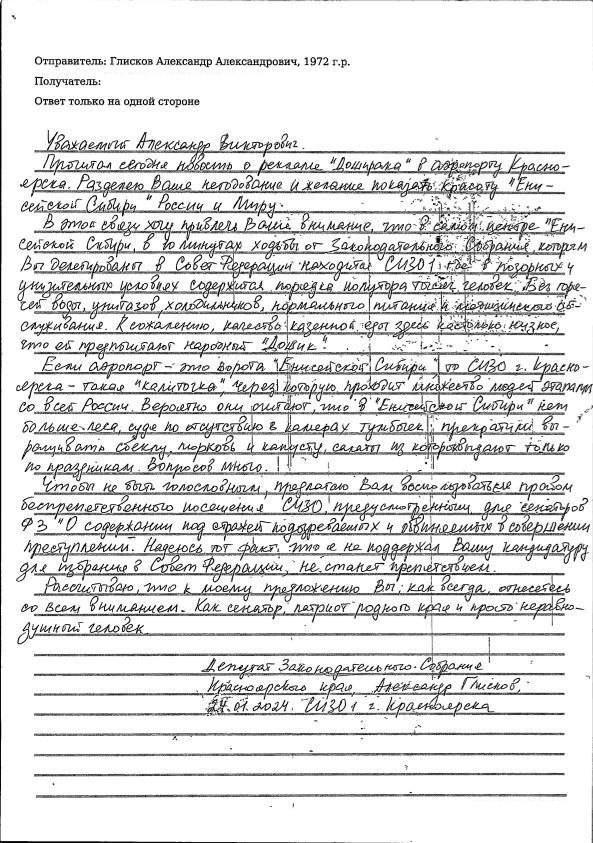 Отправитель: Глисков Александр Александрович, 1972 г.р.
Получатель:
Ответ только на одной стороне
Уважаемый Александр Викторович.
Прочитал сегодня новость о рекламе "Доширака" в аэропорту Красно-
ярска. Разделяю Ваше негодование и желание показать красоту "Ени-
сейской Сибири" России и Миру.
В этой связи хочу привлечь Ваше внимание, что в самом центре "Ени-
сейской Сибири, в 10 минутах ходьбы от Законодательного Собрания, которым
Вы делегированы в Совет Федерации находится СИЗО 1 где в позорных и
унизительных условиях содержится порядка полутора тысяч человек. Без горя-
чей воды, унитазов, холодильников, нормального питания и медицинского об-
служивания. К сожалению, качество казенной еды здесь настолько низкое,
что ей предпочитают народный "Дошик".
Если аэропорт - это ворота "Енисейской Сибири" то СИЗО г. Красно-
ярска - такая "калиточка", через которую проходит множество людей этапами
со всей России. Вероятно они считают, что в "Енисейской Сибири" нет
больше леса, судя по отсутствию в камерах тумбочек, прекратили вы-
ращивать свеклу, морковь и капусту, салаты из которой выдают только
по праздникам. Вопросов много.
Чтобы не быть голословным, предлагаю Вам воспользоваться правом
беспрепетственного посещения СИЗО, предусмотренным для сенаторов
ФЗ "О содержании под стражей подозреваемых и обвиняемых в совершении
преступлений. Надеюсь тот факт, что я не поддержал Вашу кандидатуру
для избрания в Совет Федерации, не станет препятствием.
Рассчитываю, что к моему предложению Вы, как всегда, отнесетесь
со всем вниманием. Как сенатор, патриот родного края и просто неравно-
душный человек.
Депутат Законодательного Собрания
Красноярского края, Александр Глисков,
24.01.2024. СИЗО 1 г. Красноярска